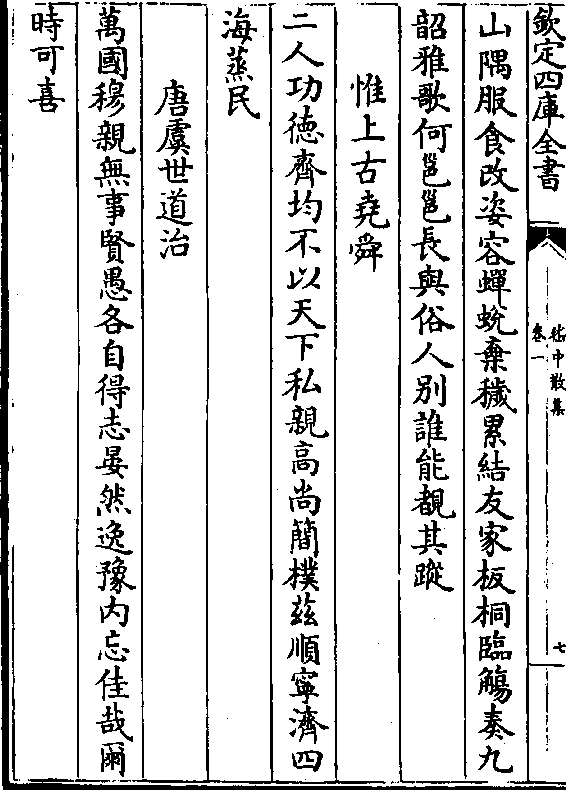 欽定四庫全書
嵇中散集
卷一
七
山隅服食改姿容蟬蛻棄穢累結友家板桐臨觴奏九
韶雅歌何邕邕長與俗人别誰能覩其蹤
惟上古堯舜
二人功德齊均不以天下私親高尚簡樸茲順寧濟四
海蒸民
唐虞世道治
萬國穆親無事賢愚各自得志晏然逸豫内忘佳哉爾
時可喜